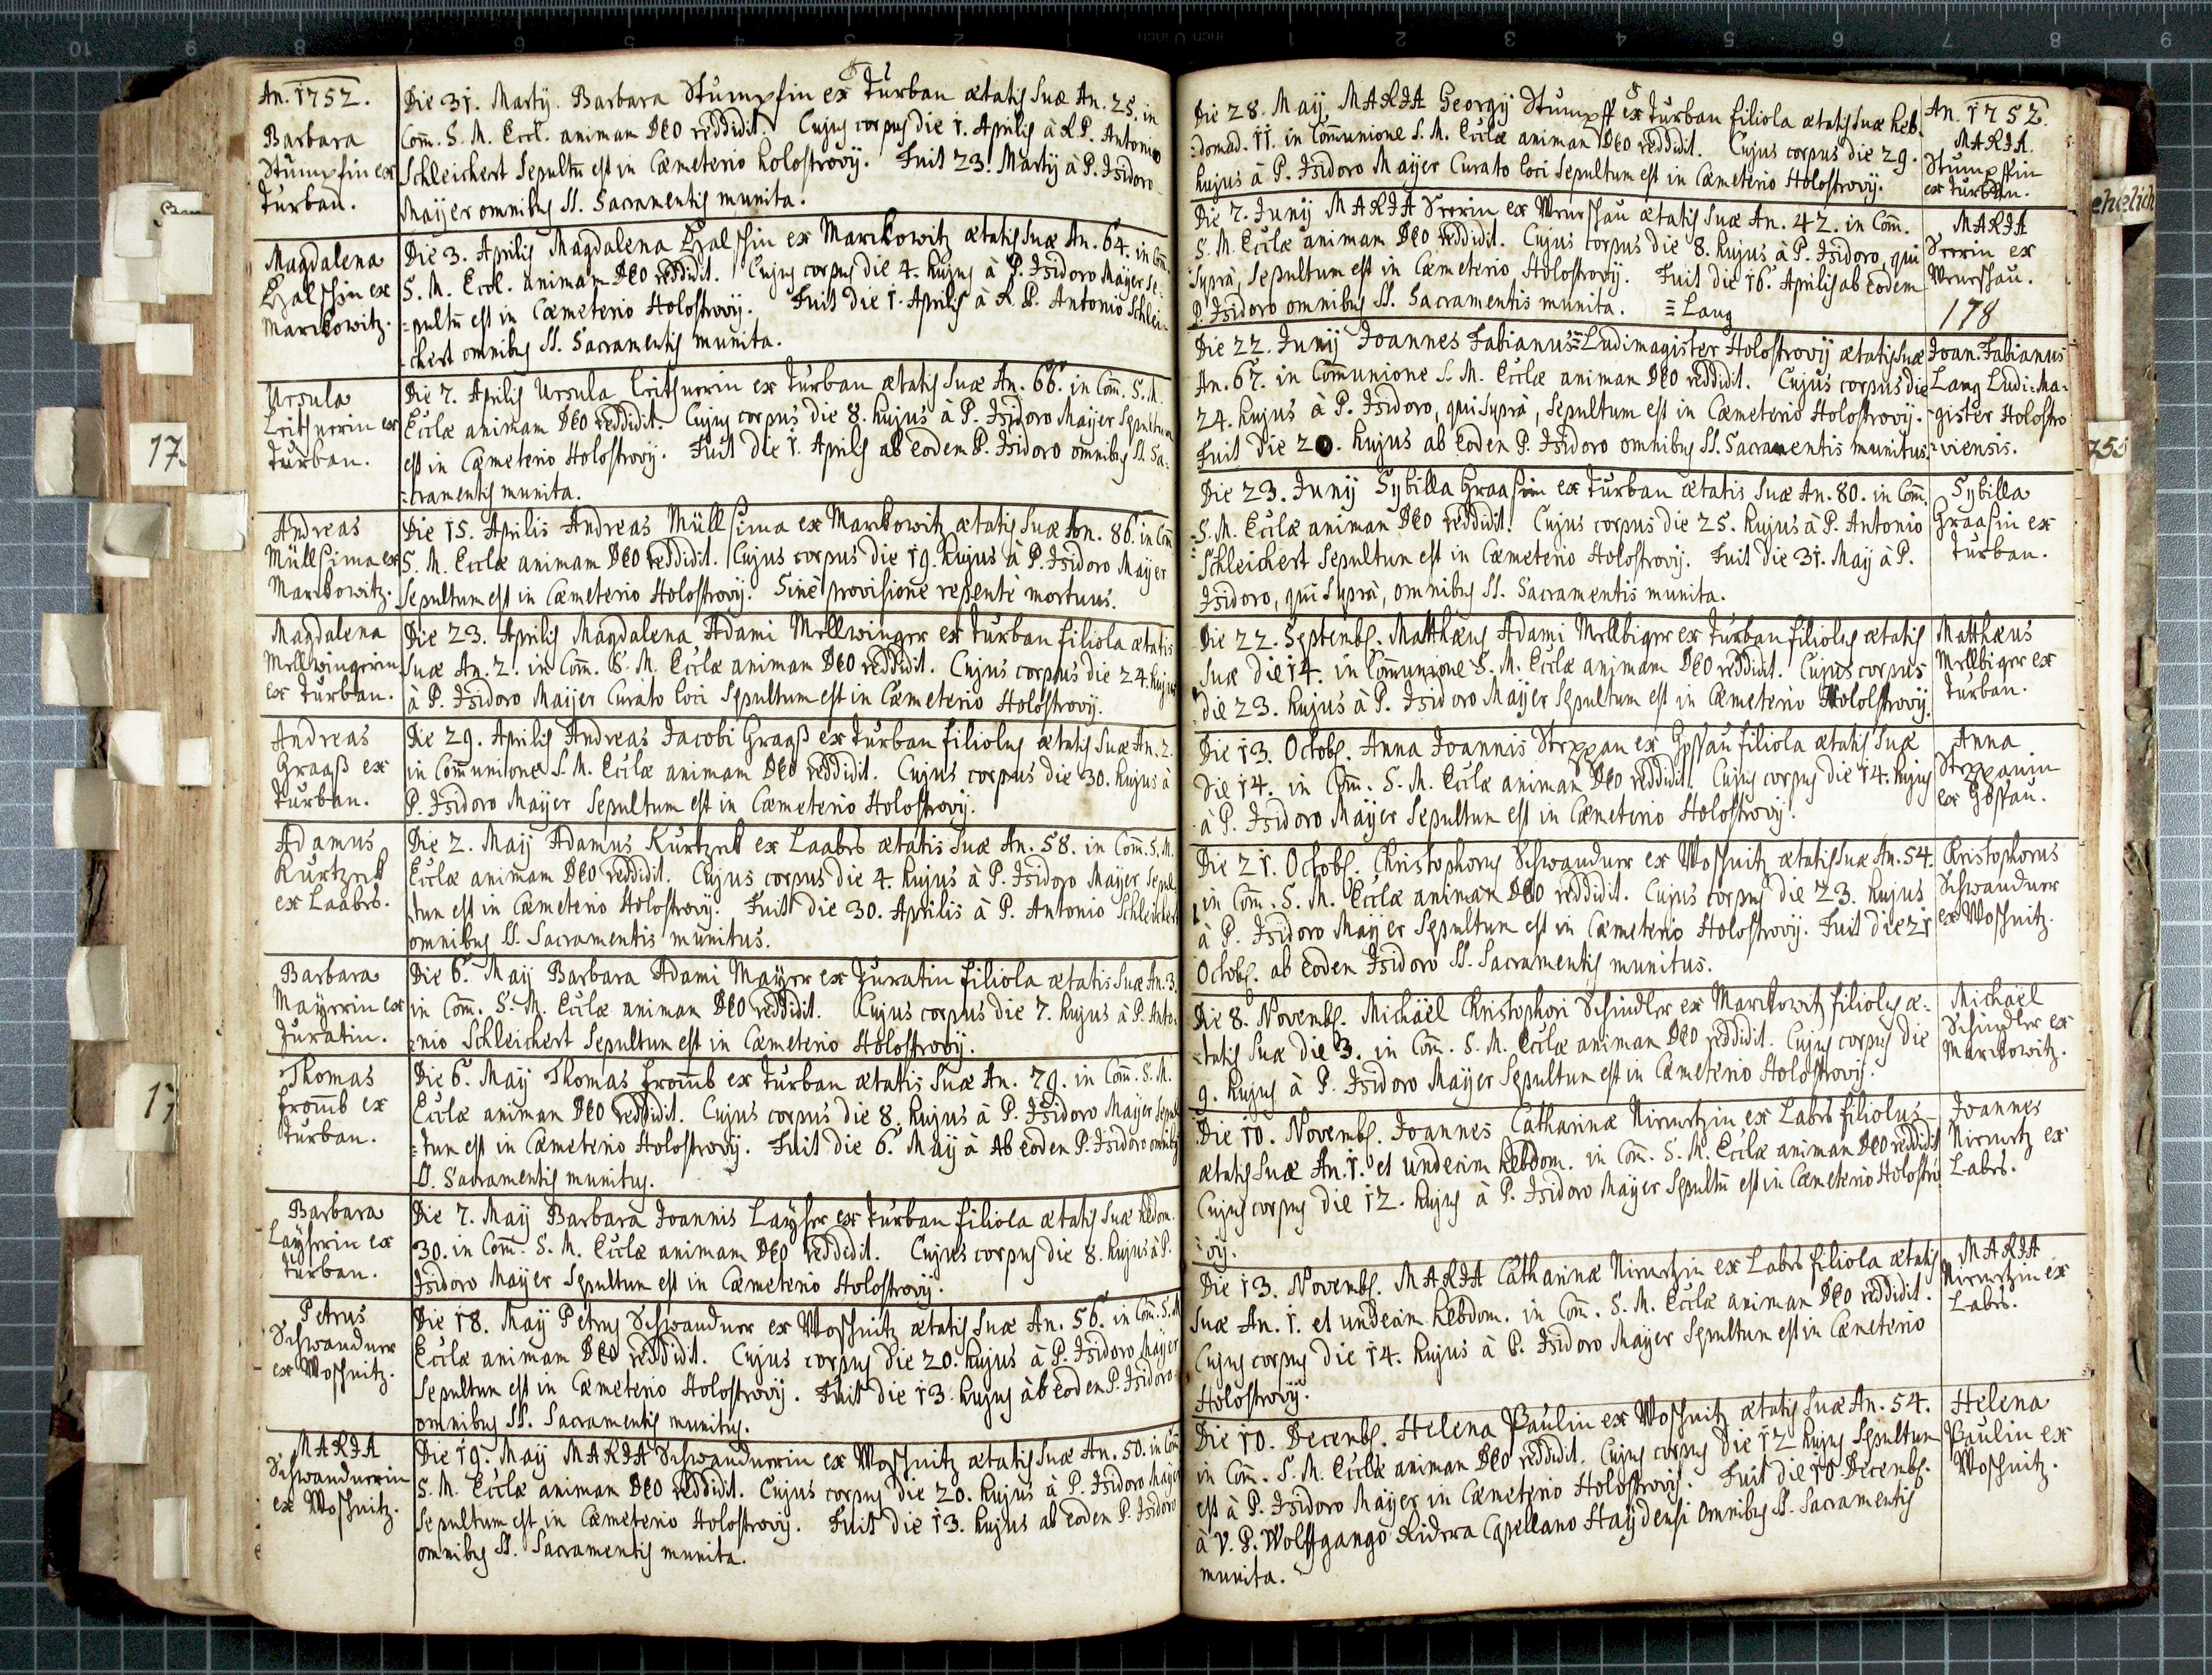 An. 1752.
Barbara
Stumpfin ex
Turban.
Die 31. Martij. Barbara Stumpfin ex Turban ætatis suæ An. 25. in
Com̄. S. M. Eccl. animam DEO reddidit. Cujus corpus die 1. Aprilis à R.P. Antonio
Schleichert Sepultū est in Cæmeterio holostrovij. Fuit 23. Martij à P. Isidoro
Maijer omnibus SS. Sacramentis munita.
Magdalena
ex
Marikowitz.
Die 3. Aprilis Magdalena ex Marikowitz ætatis suæ An. 64. in Com̄.
S. M. Eccl. animam DEO reddidit. Cujus corpus die 4. hujus à P. Isidoro Mayer Se-
=pultū est in Cæmeterio Holostrovij. Fuit die 1. Aprilis à R. P. Antonio Schlei-
=chert omnibus SS. Sacramentis munita.
Ursula
ex
Turban.
Die 7. Aprilis Ursula ex Turban ætatis suæ An. 66. in Com̄. S. M.
Ecclæ animam DEO reddidit. Cujus corpus die 8. hujus à P. Isidoro Maijer Sepultum
est in Cæmeterio Holostrovij. Fuit die 1. Aprilis ab eodem P. Isidoro omnibus SS. Sa-
=cramentis munita.
Andreas
Müllsima ex
Marikowitz.
Die 15. Aprilis Andreas Müllsima ex Marikowitz ætatis suæ An. 86. in Com̄
S. M. Ecclæ animam DEO reddidit. Cujus corpus die 19. hujus à P. Isidoro Maijer
Sepultum est in Cæmeterio Holostrovij. Sine provisione repentè mortuus.
Magdalena
Mellwingerin
ex Turban.
Die 23. Aprilis Magdalena Adami Mellwinger ex Turban filiola ætatis
suæ An. 2. in Com̄. S. M. Ecclæ animam DEO reddidit. Cujus corpus die 24. hujus
à P. Isidoro Maijer Curato loci Sepultum est in Cæmeterio Holostrovij.
Andreas
Graaß ex
Turban.
Die 29. Aprilis Andreas Jacobi Graaß ex Turban filiolus ætatis suæ An. 2.
in Com̄unione S. M. Ecclæ animam DEO reddidit. Cujus corpus die 30. hujus à
P. Isidoro Mayer Sepultum est in Cæmeterio Holostrovij.
Adamus
Kurtzeck
ex Laabes.
Die 2. Maij Adamus Kurtzeck ex Laabes ætatis suæ An. 58. in Com̄. S. M.
Ecclæ animam DEO reddidit. Cujus corpus die 4. hujus à P. Isidoro Maijer Sepul-
tum est in Cæmeterio Holostrovij. Fuit die 30. Aprilis à P. Antonio Schleichert
omnibus SS. Sacramentis munitus.
Barbara
Mayerin ex
Juratin.
Die 6. Maij Barbara Adami Mayer ex Juratin filiola ætatis suæ An. 3.
in Com̄. S. M. Ecclæ animam DEO reddidit. Cujus corpus die 7. hujus à P. Anto-
=nio Schleichert Sepultum est in Cæmeterio Holostrovij.
Thomas
From̄b ex
Turban.
Die 6. Maij Thomas From̄b ex Turban ætatis suæ An. 29. in Com̄. S. M.
Ecclæ animam DEO reddidit. Cujus corpus die 8. hujus à P. Isidoro Mayer Sepul
=tum est in Cæmeterio Holostrovij. Fuit die 6. Maij à Ab eodem P. Isidoro omnibus
SS. Sacramentis munitus.
Barbara
Layserin ex
Turban.
Die 7. Maij Barbara Joannis Layser ex Turban filiola ætatis suæ hebdom.
30. in Com̄. S. M. Ecclæ animam DEO reddidit. Cujus corpus die 8. hujus à P.
Isidoro Mayer Sepultum est in Cæmeterio Holostrovij.
Petrus
Schwandner
ex Woschnitz.
Die 18. Maij Petrus Schwandner ex Woschnitz ætatis suæ An. 56. in Com̄. S. M
Ecclæ animam DEO reddidit. Cujus corpus die 20. hujus à P. Isidoro Mayer
Sepultum est in Cæmeterio Holostrovij. Fuit die 13. hujus ab eodem P. Isidoro
omnibus SS. Sacramentis munitus.
MARIA
Schwandnerin
ex Woschnitz.
Die 19. Maij MARIA Schwandnerin ex Woschnitz ætatis suæ An. 50. in Com̄
S. M. Ecclæ animam DEO reddidit. Cujus corpus die 20. hujus à P. Isidoro Mayer
Sepultum est in Cæmeterio Holostrovij. Fuit die 13. hujus ab eodem P. Isidoro
omnibus SS. Sacramentis munita.
Die 28. Maij MARIA Georgij Stumpff ex Turban filiola ætatis suæ heb-
=domad. 11. in Com̄unione S. M. Ecclæ animam DEO reddidit. Cujus corpus die 29.
hujus à P. Isidoro Mayer Curato loci Sepultum est in Cæmeterio Holostrovij.
An. 1752.
MARIA
Stumpffin
ex Turban.
Die 7. Junij MARIA ex ætatis suæ An. 42. in Com̄.
S. M. Ecclæ animam DEO reddidit. Cujus corpus die 8. hujus à P. Isidoro, qui
suprà, Sepultum est in Cæmeterio Holostrovij. Fuit die 16. Aprilis ab eodem
P. Isidoro omnibus SS. Sacramentis munita. = Lang
MARIA
ex
178
Die 22. Junij Joannes Fabianus = Ludimagister Holostrovij ætatis suæ
An. 67. in Com̄unione S. M. Ecclæ animam DEO reddidit. Cujus corpus die
24. hujus à P. Isidoro, qui suprà, Sepultum est in Cæmeterio Holostrovij.
Fuit die 20. hujus ab eodem P. Isidoro omnibus SS. Sacramentis munitus.
Joan. Fabianus
Lang Ludi=Ma=
gister Holostro
=viensis.
Die 23. Junij Sybilla Graaßin ex Turban ætatis suæ An. 80. in Com̄.
S. M. Ecclæ animam DEO reddidit. Cujus corpus die 25. hujus à P. Antonio
Schleichert Sepultum est in Cæmeterio Holostrovij. Fuit die 31. Maij à P.
Isidoro, qui suprà, omnibus SS. Sacramentis munita.
Sybilla
Graaßin ex
Turban.
Die 22. Septemb. Matthæus Adami Mellbiger ex Turban filiolus ætatis
suæ die 14. in Com̄unione S. M. Ecclæ animam DEO reddidit. Cujus corpus
die 23. hujus à P. Isidoro Mayer Sepultum est in Cæmeterio Hololstrovij.
Matthæus
Mellbiger ex
Turban.
Die 13. Octob. Anna Joannis Steppan ex Gossau filiola ætatis suæ
die 14. in Com̄. S. M. Ecclæ animam DEO reddidit. Cujus corpus die 14. hujus
à P. Isidoro Mayer Sepultum est in Cæmeterio Holostrovij.
Anna
Steppanin
ex Gossau.
Die 21. Octob. Christophorus Schwandner ex Woschnitz ætatis suæ An. 54.
in Com̄. S. M. Ecclæ animam DEO reddidit. Cujus corpus die 23. hujus
à P. Isidoro Mayer Sepultum est in Cæmeterio Holostrovij. Fuit die 21
Octob. ab eodem Isidoro SS. Sacramentis munitus.
Christophorus
Schwandner
ex Woschnitz.
Die 8. Novemb. Michaël Christophori Schindler ex Marikowitz filiolus æ-
=tatis suæ die 3. in Com̄. S. M. Ecclæ animam DEO reddidit. Cujus corpus die
9. hujus à P. Isidoro Mayer Sepultum est in Cæmeterio Holostrovij.
Michaël
Schindler ex
Marikowitz.
Die 10. Novemb. Joannes Catharinæ ex Labes filiolus
ætatis suæ An. 1. et undecim hebdom. in Com̄. S. M. Ecclæ animam DEO reddidit
Cujus corpus die 12. hujus à P. Isidoro Mayer Sepultū est in Cæmeterio Holostro
=vij.
Joannes
ex
Labes.
Die 13. Novemb. MARIA Catharinæ ex Labes filiola ætatis
suæ An. 1. et undecim hebdom. in Com̄. S. M. Ecclæ animam DEO reddidit.
Cujus corpus die 14. hujus à P. Isidoro Mayer Sepultum est in Cæmeterio
Holostrovij.
MARIA
ex
Labes.
Die 10. Decemb. Helena Paulin ex Woschnitz ætatis suæ An. 54.
in Com̄. S. M. Ecclæ animam DEO reddidit. Cujus corpus die 12 hujus Sepultum
est à P. Isidoro Mayer in Cæmeterio Holostrovij. Fuit die 10 Decemb.
à V. P. Wolffgango Capellano Haijdensi omnibus SS. Sacramentis
munita.
Helena
Paulin ex
Woschnitz.
ehelich